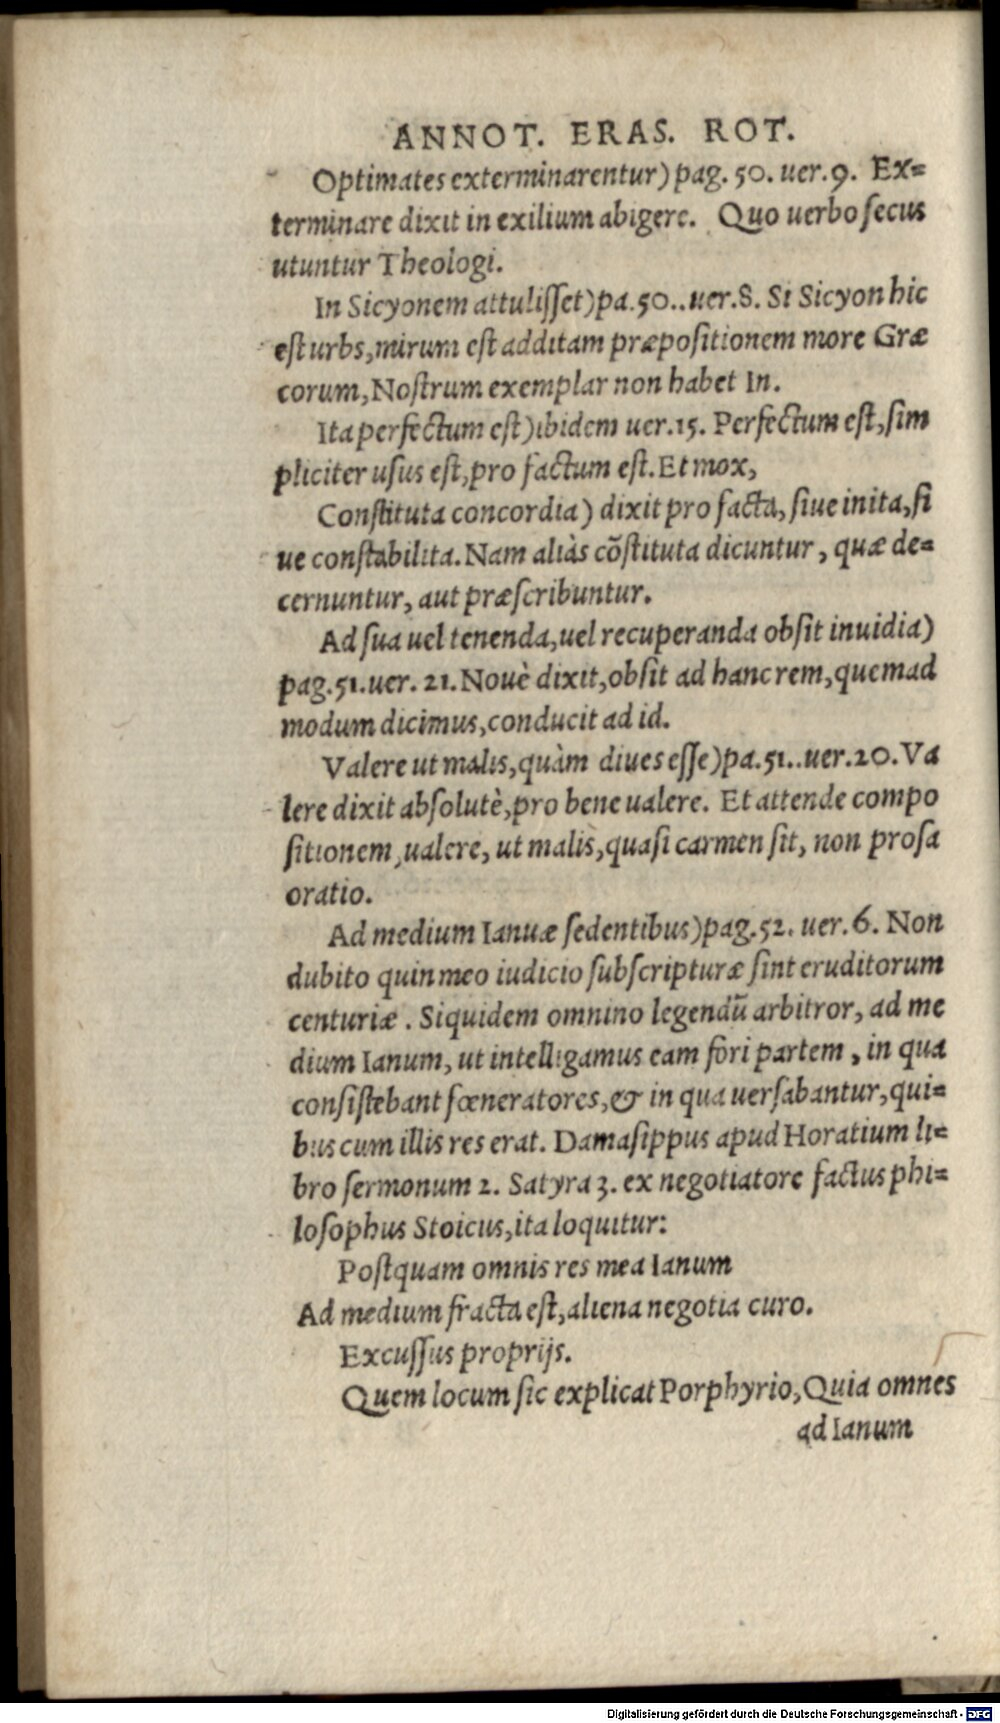 ANNOT. ERAS. ROT.
Optimates exterminarentur) pag. 50. uer. 9. Ex=
terminare dixit in exilium abigere. Quo uerbo secus
utuntur Theologi.
In Sicyonem attulisset) pa. 50.. uer. 8. Si Sicyon hic
est urbs, mirum est additam præpositionem more Græ
corum, Nostrum exemplar non habet In.
Ita perfectum est) ibidem uer. 15. Perfectum est, sim
pliciter usus est, pro factum est. Et mox,
Constituta concordia) dixit pro facta, siue inita, si
ue constabilita. Nam aliàs cõstituta dicuntur, quæ de=
cernuntur, aut præscribuntur.
Ad sua uel tenenda, uel recuperanda obsit inuidia)
pag. 51. uer. 21. Nouè dixit, obsit ad hanc rem, quemad
modum dicimus, conducit ad id.
Valere ut malis, quàm diues esse) pa. 51.. uer. 20. Va
lere dixit absolutè, pro bene ualere. Et attende compo
sitionem, ualere, ut malis, quasi carmen sit, non prosa
oratio.
Ad medium Ianuæ sedentibus) pag. 52. uer. 6. Non
dubito quin meo iudicio subscripturæ sint eruditorum
centuriæ. Siquidem omnino legendũ arbitror, ad me
dium Ianum, ut intelligamus eam fori partem, in qua
consistebant fœneratores, & in qua uersabantur, qui=
bus cum illis res erat. Damasippus apud Horatium li=
bro sermonum 2. Satyra 3. ex negotiatore factus phi=
losophus Stoicus, ita loquitur:
Postquam omnis res mea Ianum
Ad medium fracta est, aliena negotia curo.
Excussus proprijs.
Quem locum sic explicat Porphyrio, Quia omnes
ad Ianum
Digitalisierung gefördert durch die Deutsche Forschungsgemeinschaft - DFG